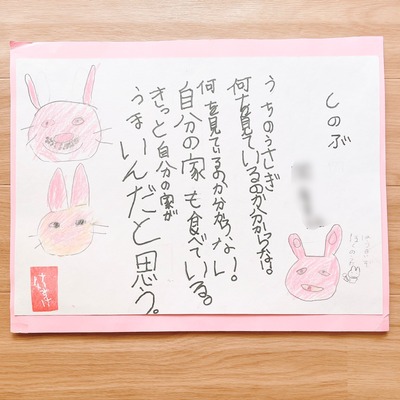 しのぶ
うちのうさぎ
何を見ているのか分からな。
何を見ているのか分からない。
自分の家も食べている。
きっと自分の家が
うまいんだと思う。